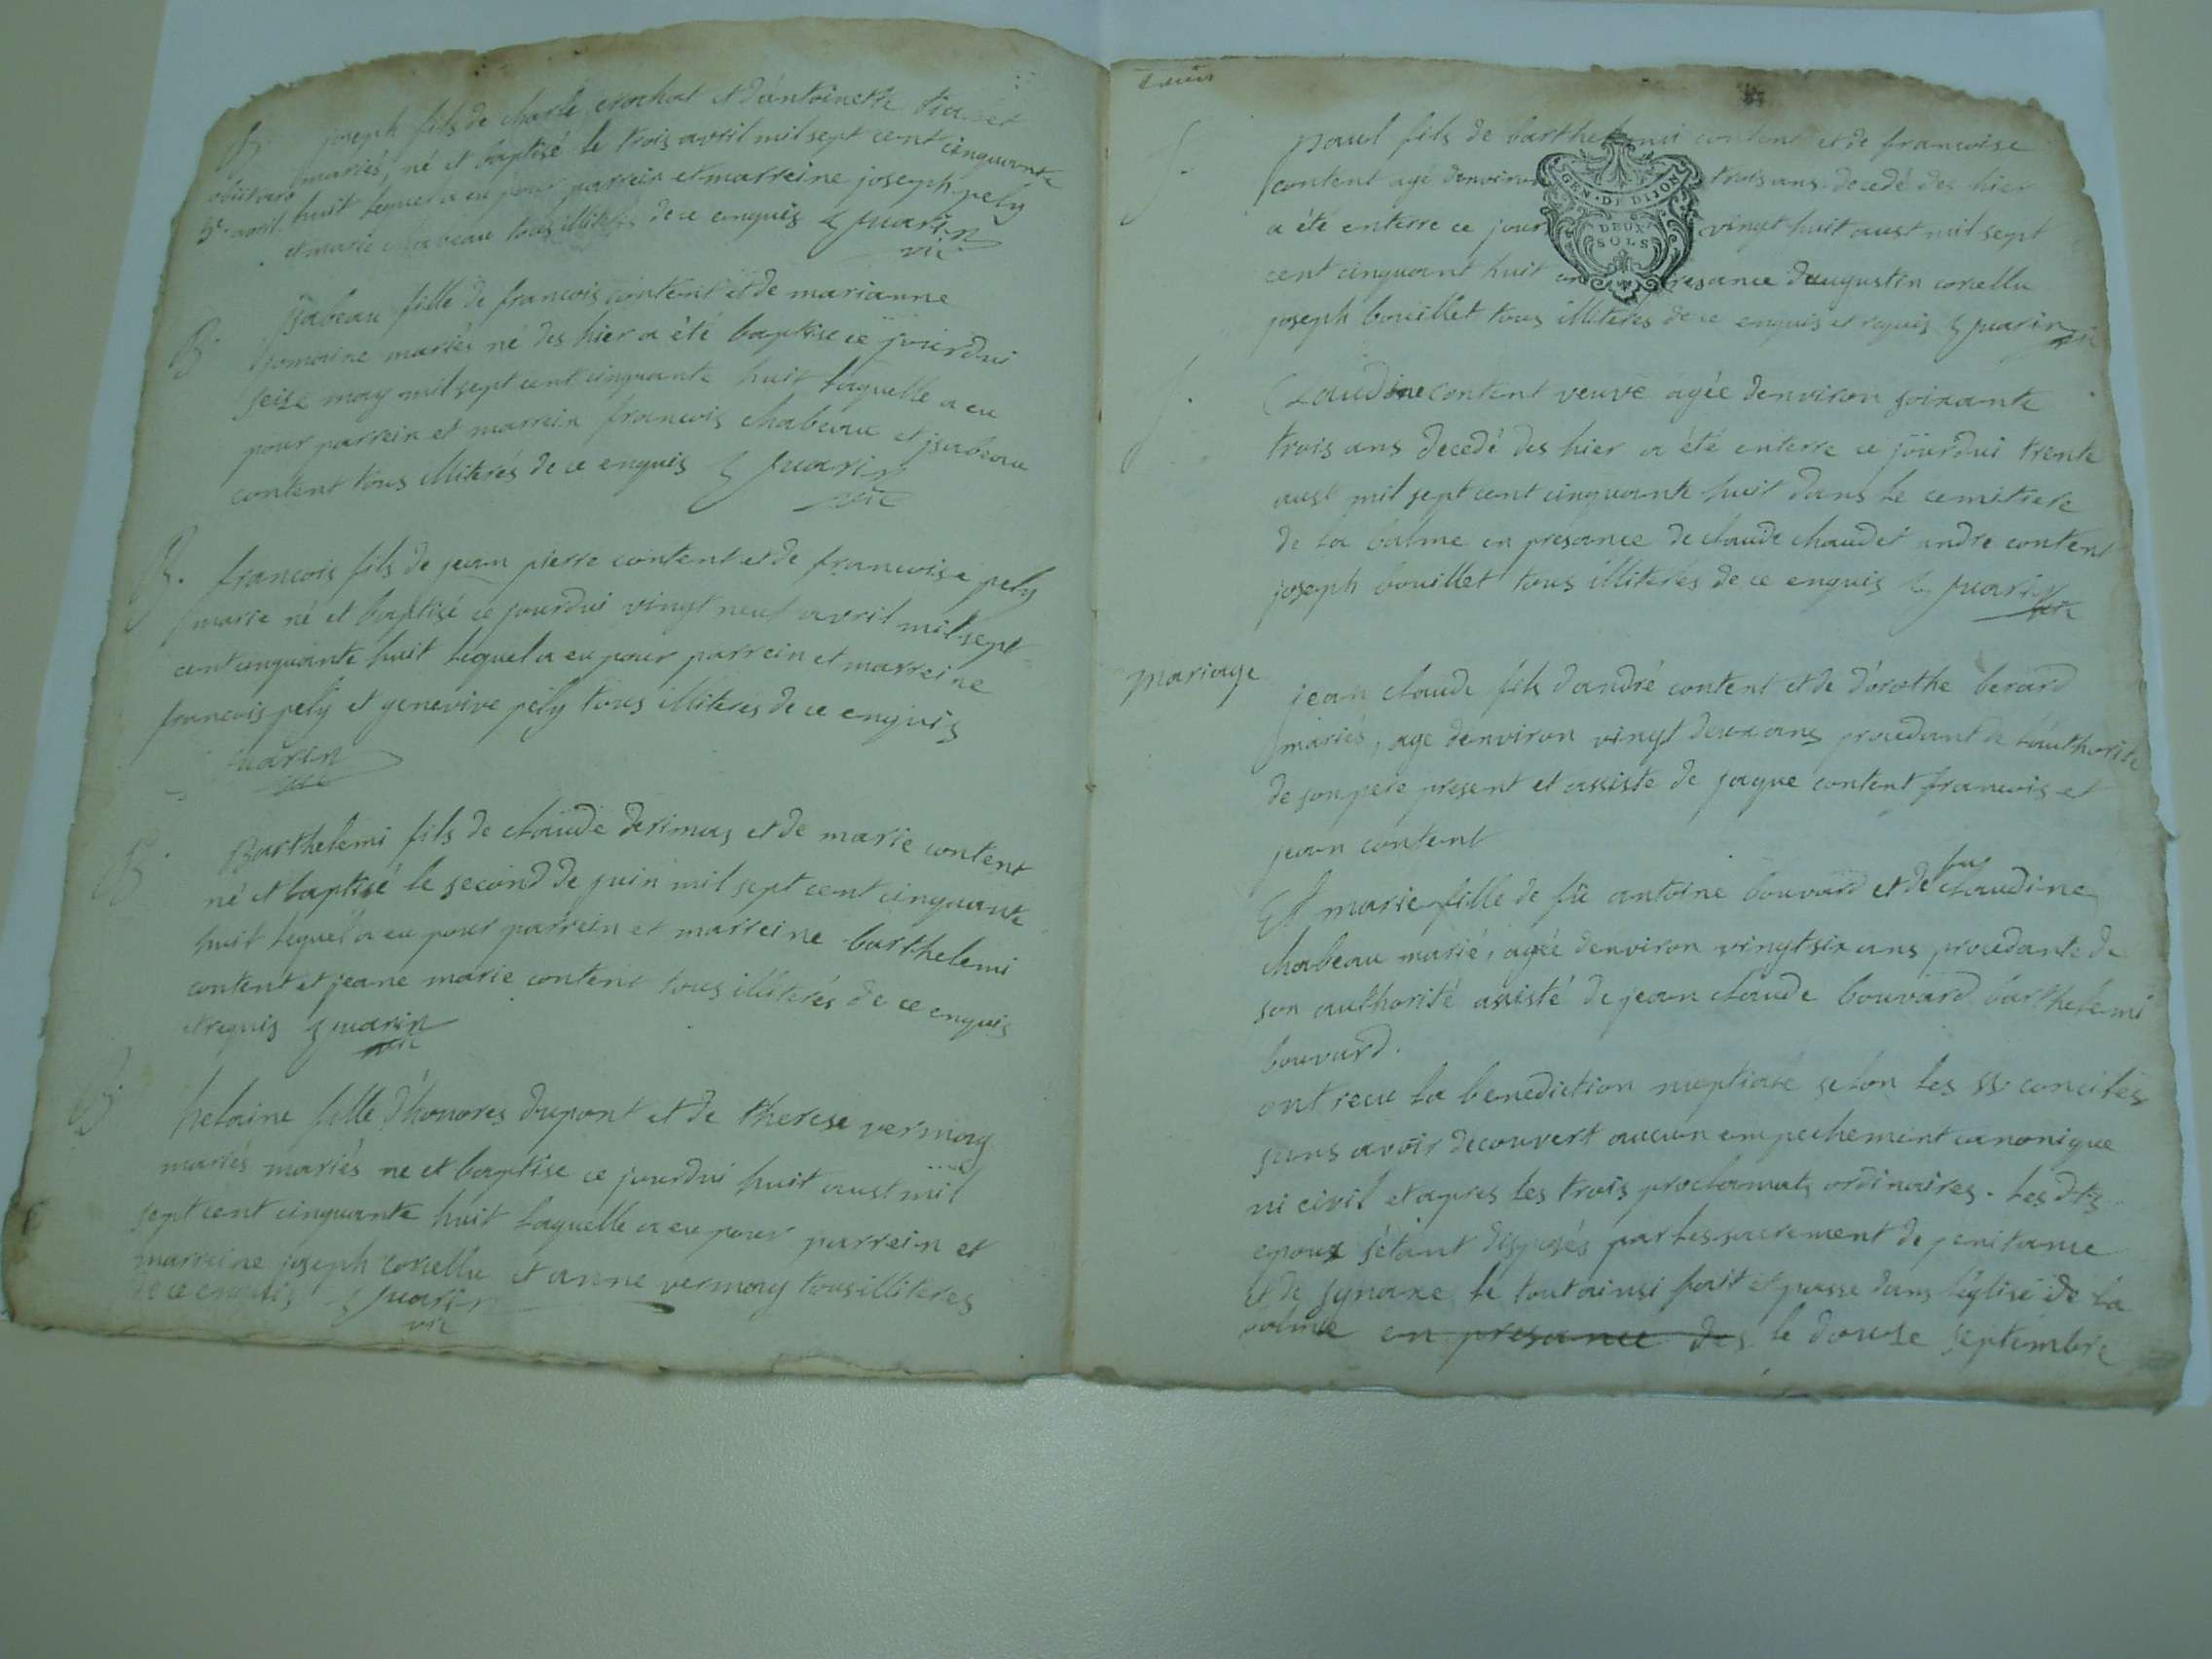 B. joseph fils de charle crochat et d'antoinette
obiit mariés, né et baptisé le trois avril mil sept cent cinquante
5e avril. huit lequel a eu pour parrein et marreine joseph pely
et marie chabeau tous illiterés de ce enquis Guarin
vic
B. jsabeau fille de francois content et de marianne
romaine mariés né des hier a été baptise ce jourdui
seise may mil sept cent cinquante huit laquelle a eu
pour parrein et marrein francois chabeau et jsabeau
content tous illiterés de ce enquis Guarin
vic
B. francois fils de jean pierre content et de francoise pely
marie né et baptisé ce jourdui vingt neuf avril mil sept
cent cinquante huit lequel a eu pour parrein et marreine
francois pely et genevive pely tous illiteres de ce enquis
Guarin
vic
B. Barthelemi fils de claude derimas et de marie content
né et baptisé le second de juin mil sept cent cinquante
huit lequel a eu pour parrein et marreine barthelemi
content et jeane marie content tous illiterés de ce enquis
et requis Guarin
vic
B. helaine fille d'honores dupont et de therese vermay
mariés mariés ne et baptise ce jourdui huit aust mil
sept cent cinquante huit laquelle a eu pour parrein et
marreine joseph corellu et anne vermay tous illiteres
de ce enquis Guarin
vic
paul fils de barthelemi content et de francoise
content agé denviron trois ans decedé des hier
a été enterre ce jour vingt huit aust mil sept
cent cinquant huit en presance daugustin corellu
joseph bouillet tous illiterés de ce enquis et requis Guarin
GEN. DE DIJON
DEUX
SOLS
Claudine content veuve agée denviron soixante
trois ans decedé des hier a été enterre ce jourdui trente
aust mil sept cent cinquante huit dans le cemitiere
de la balme en presance de claude chaudet andre content
joseph bouillet tous illiterés de ce enquis Guarin
vic
mariage jean claude fils d'andré content et de dorothe berard
mariés, age denviron vingt deux ans procedant de l'authorite
de son pere present et assiste de jaque content francois et
jean content
Et marie fille de fû antoine bouvard et de fue claudine
chabeau marié, agée denviron vingt six ans procedante de
son authorité assisté de jean claude bouvard barthelemi
bouvard.
ont recu la benediction nuptiale selon les SS conciles
sans avoir decouvert aucun empechement canonique
ni civil et apres les trois proclamats ordinaires. Les dts
epoux s'étant disposés par les sacrement de penitance
et de synaxe le tout ainsi fait et passe dans l'église de la
balme en presance des le douse septembre